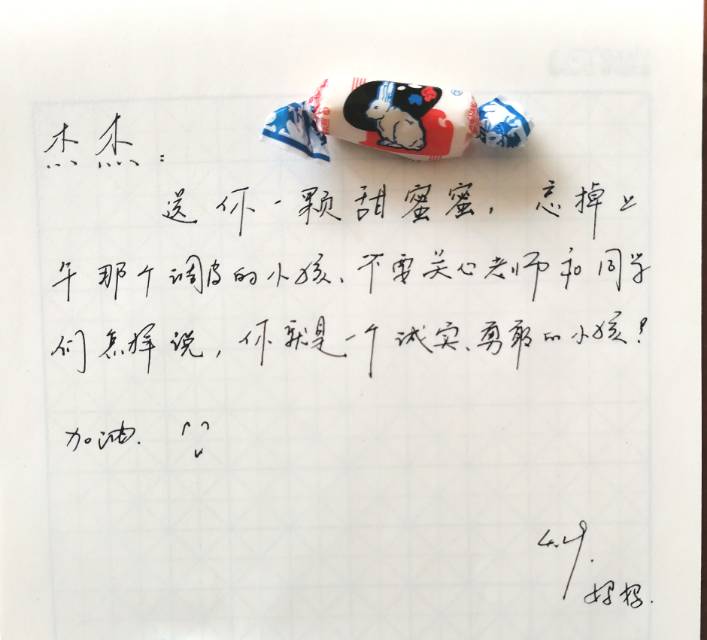 杰杰：
送你一颗甜蜜蜜，忘掉上
午那个调皮的小孩、不要关心老师和同学
们怎样说，你就是一个诚实、勇敢的小孩！
加油.
4.9.
妈妈.